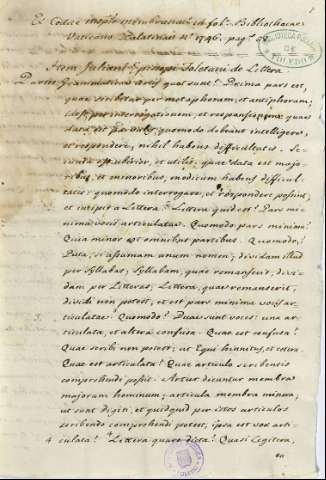 Ex Codice membranaceo in fol. Bibliothecae
Vaticanae Palatinae Nº 1746. pag. 99.
BIBLIOTECA PUBLICA
DE
TOLEDO
Item Juliani Episcopi Toletani de Littera
Partes Grammaticae artis quot sunt? Decima pars est,
quae scribitur per metaphoram, et antiphoram,
per interrogationem, et responsionem quae
data est parvulis, quomodo debeant intelligere,
et respondere, nihil habens difficultatis. Se-
cunda et utilis, quae data est majo-
ribus, et minoribus, modicum habens difficul-
tatis: quomodo interrogare, et respondere possint,
et incipit a Littera. Littera quid est? Pars mi-
nima vocis articulatae. Quomodo pars minima?
Quia minor est omnibus partibus. Quomodo?
Puta, si assumam unum nomen; dividam illud
per Syllabas; Syllabam, quae remanserit, divi-
dam per Litteras; Littera, quae remanserit,
dividi non potest, et est pars minima vocis ar-
ticulatae. Quomodo? Duae sunt voces: una ar-
ticulata, et altera confusa. Quae est confusa?
Quae scribi non potest; ut Equi hinnitus, et cetera.
Quae est articulata? Quae articulo scribentis
comprehendi possit. Artus dicuntur membra
majora hominum; articula membra minora,
ut sunt digiti, et quidquid per istos articulos
scribendo comprehendi potest, ipsa est vox arti-
4 culata. 4 Littera quare dicta? Quasi Legitera,